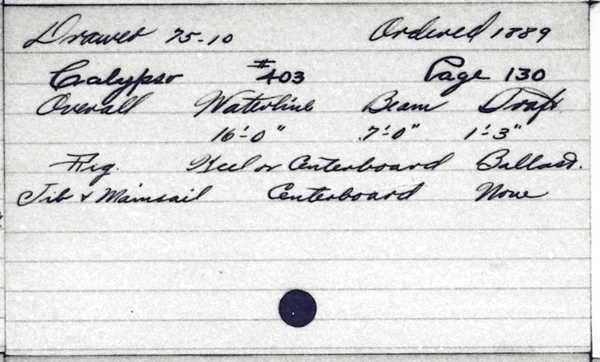 Drawer 75-10 Ordered 1889
Calypso #403 Page 130
Overall Waterline Beam Draft
16'-0" 7'-0" 1'-3"
Rig. Keel or Centerboard Ballast.
Jib & Mainsail Centerboard None